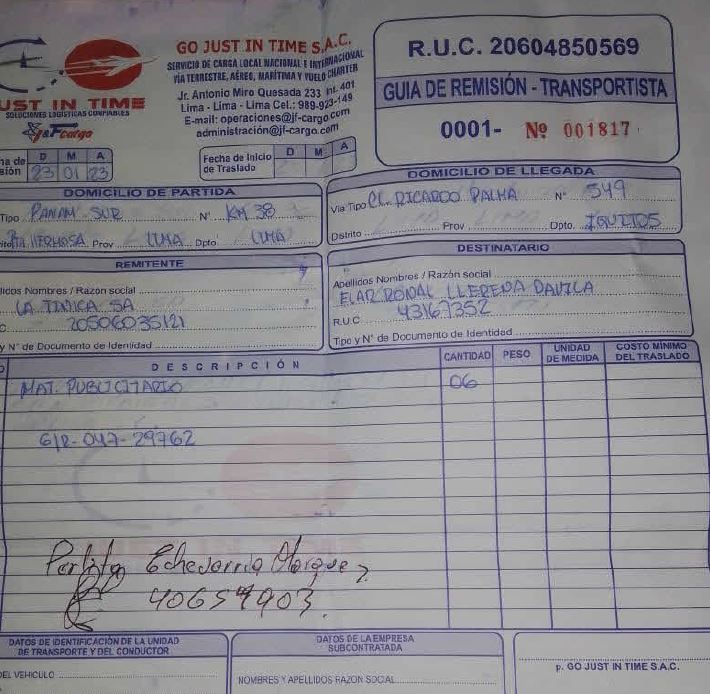 GO JUST IN TIME S.A.C.
SERVICIO DE CARGA LOCAL NACIONAL E INTERNACIONAL
VÍA TERRESTRE, AÉREO, MARÍTIMA Y VUELO CHARTER
Jr. Antonio Miro Quesada 233 Int. 401
Lima - Lima - Lima Cel.: 989-923-149
E-mail: operaciones@jf-cargo.com
administración@jf-cargo.com
UST IN TIME
SOLUCIONES LOGÍSTICAS CONFIABLES
J&F cargo
R.U.C. 20604850569
GUIA DE REMISIÓN - TRANSPORTISTA
0001- Nº 001817
ha de
sión
D M A
23 01 23
Fecha de Inicio
de Traslado
D M A
DOMICILIO DE PARTIDA
Tipo PANAM SUR Nº KM 38
ito Prov LIMA Dpto LIMA
DOMICILIO DE LLEGADA
Via Tipo CL. RICARDO PALMA Nº 549
Distrito Prov Dpto. IQUITOS
REMITENTE
llidos Nombres / Razón social
LA TINICA SA
C 20506035121
y Nº de Documento de Identidad
DESTINATARIO
Apellidos Nombres / Razón social
ELAR RONAL LLERENA DAVILA
R.U.C 43167352
Tipo y Nº de Documento de Identidad
DESCRIPCIÓN CANTIDAD PESO UNIDAD DE MEDIDA COSTO MÍNIMO DEL TRASLADO
MAT. PUBLICITARIO 06
G/R-047-29762
Echevarria Marquez
40659903
DATOS DE IDENTIFICACIÓN DE LA UNIDAD
DE TRANSPORTE Y DEL CONDUCTOR
DEL VEHICULO
DATOS DE LA EMPRESA
SUBCONTRATADA
NOMBRES Y APELLIDOS RAZON SOCIAL
p. GO JUST IN TIME S.A.C.